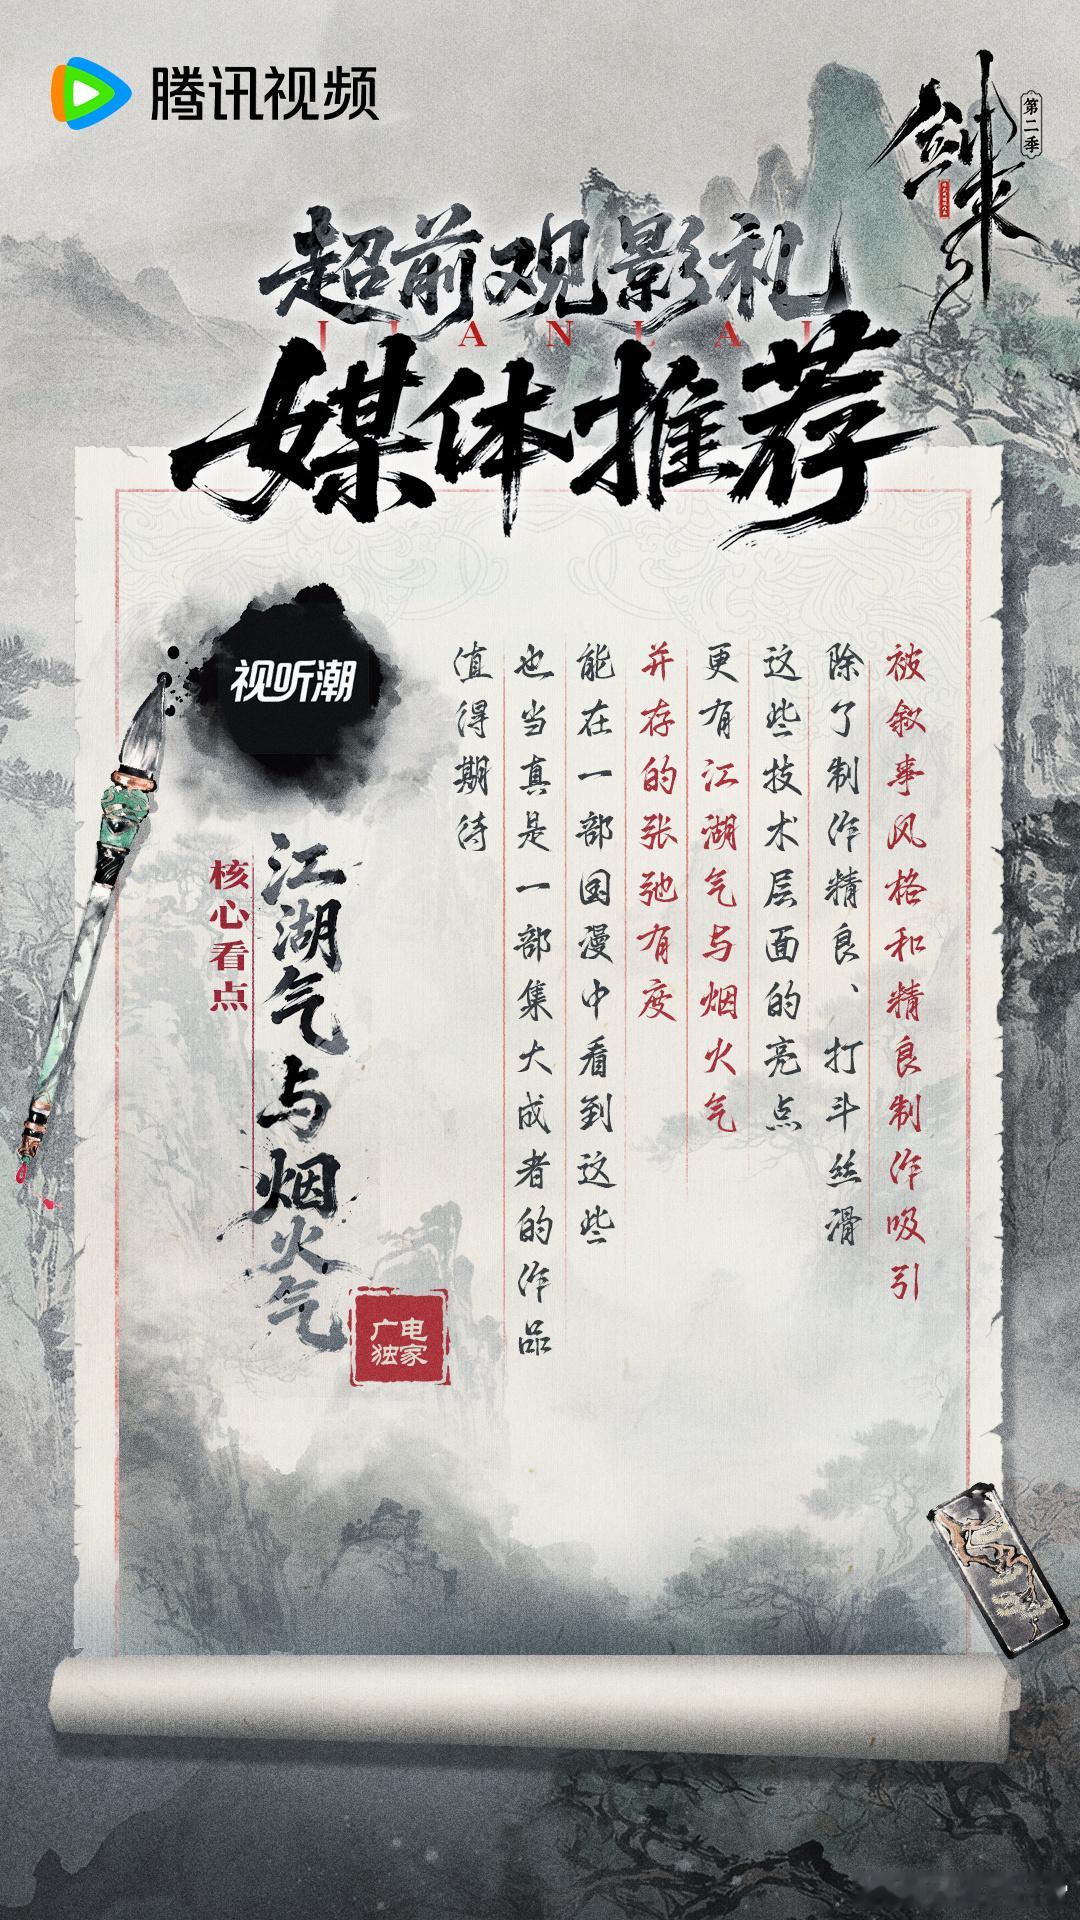 腾讯视频
剑来
第二季
超前观影礼
JIANLAI
媒体推荐
视听潮
被叙事风格和精良制作吸引
除了制作精良、打斗丝滑
这些技术层面的亮点
更有江湖气与烟火气
并存的张弛有度
能在一部国漫中看到这些
也当真是一部集大成者的作品
值得期待
核心看点
江湖气与烟火气
广电
独家